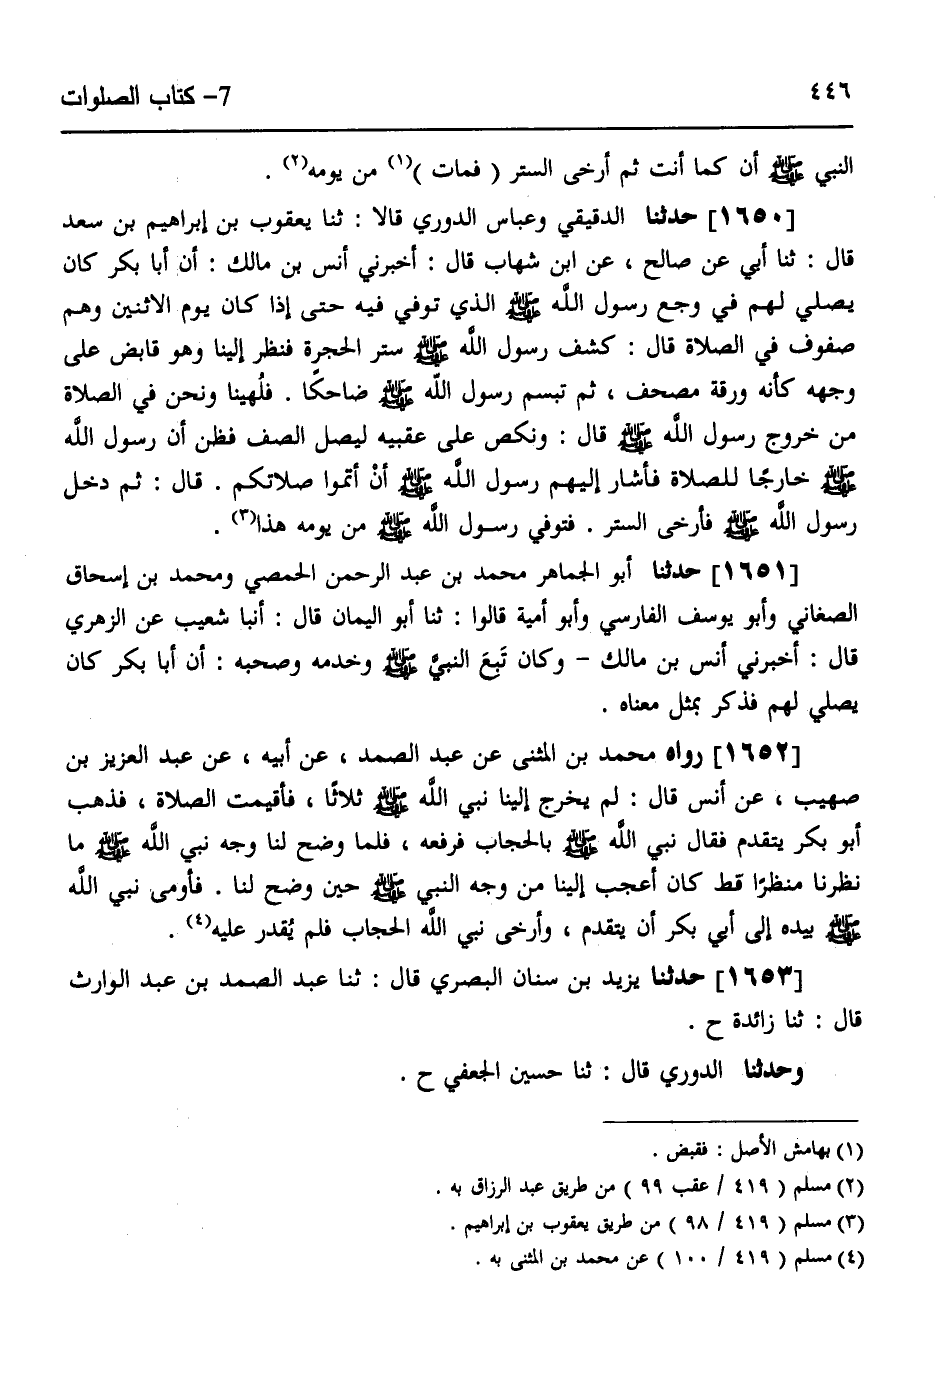 ٤٤٦
7- كتاب الصلوات
النبي ﷺ أن كما أنت ثم أرخى الستر ( فمات )(١) من يومه(٢) .
[١٦٥٠] حدثنا الدقيقي وعباس الدوري قالا : ثنا يعقوب بن إبراهيم بن سعد
قال : ثنا أبي عن صالح ، عن ابن شهاب قال : أخبرني أنس بن مالك : أن أبا بكر كان
يصلي لهم في وجع رسول اللَّه ﷺ الذي توفي فيه حتى إذا كان يوم الاثنين وهم
صفوف في الصلاة قال : كشف رسول اللَّه ﷺ ستر الحجرة فنظر إلينا وهو قابض على
وجهه كأنه ورقة مصحف ، ثم تبسم رسول اللَّه ﷺ ضاحكًا . فلُهينا ونحن في الصلاة
من خروج رسول اللَّه ﷺ قال : ونكص على عقبيه ليصل الصف فظن أن رسول اللَّه
ﷺ خارجًا للصلاة فأشار إليهم رسول اللَّه ﷺ أنْ أتموا صلاتكم . قال : ثم دخل
رسول اللَّه ﷺ فأرخى الستر . فتوفي رسول اللَّه ﷺ من يومه هذا(٣) .
[١٦٥١] حدثنا أبو الجماهر محمد بن عبد الرحمن الحمصي ومحمد بن إسحاق
الصغاني وأبو يوسف الفارسي وأبو أمية قالوا : ثنا أبو اليمان قال : أنبا شعيب عن الزهري
قال : أخبرني أنس بن مالك – وكان تَبِعَ النبيَّ ﷺ وخدمه وصحبه : أن أبا بكر كان
يصلي لهم فذكر بمثل معناه .
[١٦٥٢] رواه محمد بن المثنى عن عبد الصمد ، عن أبيه ، عن عبد العزيز بن
صهيب ، عن أنس قال : لم يخرج إلينا نبي اللَّه ﷺ ثلاثًا ، فأقيمت الصلاة ، فذهب
أبو بكر يتقدم فقال نبي اللَّه ﷺ بالحجاب فرفعه ، فلما وضح لنا وجه نبي اللَّه ﷺ ما
نظرنا منظرًا قط كان أعجب إلينا من وجه النبي ﷺ حين وضح لنا . فأومى نبي اللَّه
ﷺ بيده إلى أبي بكر أن يتقدم ، وأرخى نبي اللَّه الحجاب فلم يُقدر عليه(٤) .
[١٦٥٣] حدثنا يزيد بن سنان البصري قال : ثنا عبد الصمد بن عبد الوارث
قال : ثنا زائدة ح .
وحدثنا الدوري قال : ثنا حسين الجعفي ح .
(١) بهامش الأصل : فقبض .
(٢) مسلم ( ٤١٩ / عقب ٩٩ ) من طريق عبد الرزاق به .
(٣) مسلم ( ٤١٩ / ٩٨ ) من طريق يعقوب بن إبراهيم .
(٤) مسلم ( ٤١٩ / ١٠٠ ) عن محمد بن المثنى به .